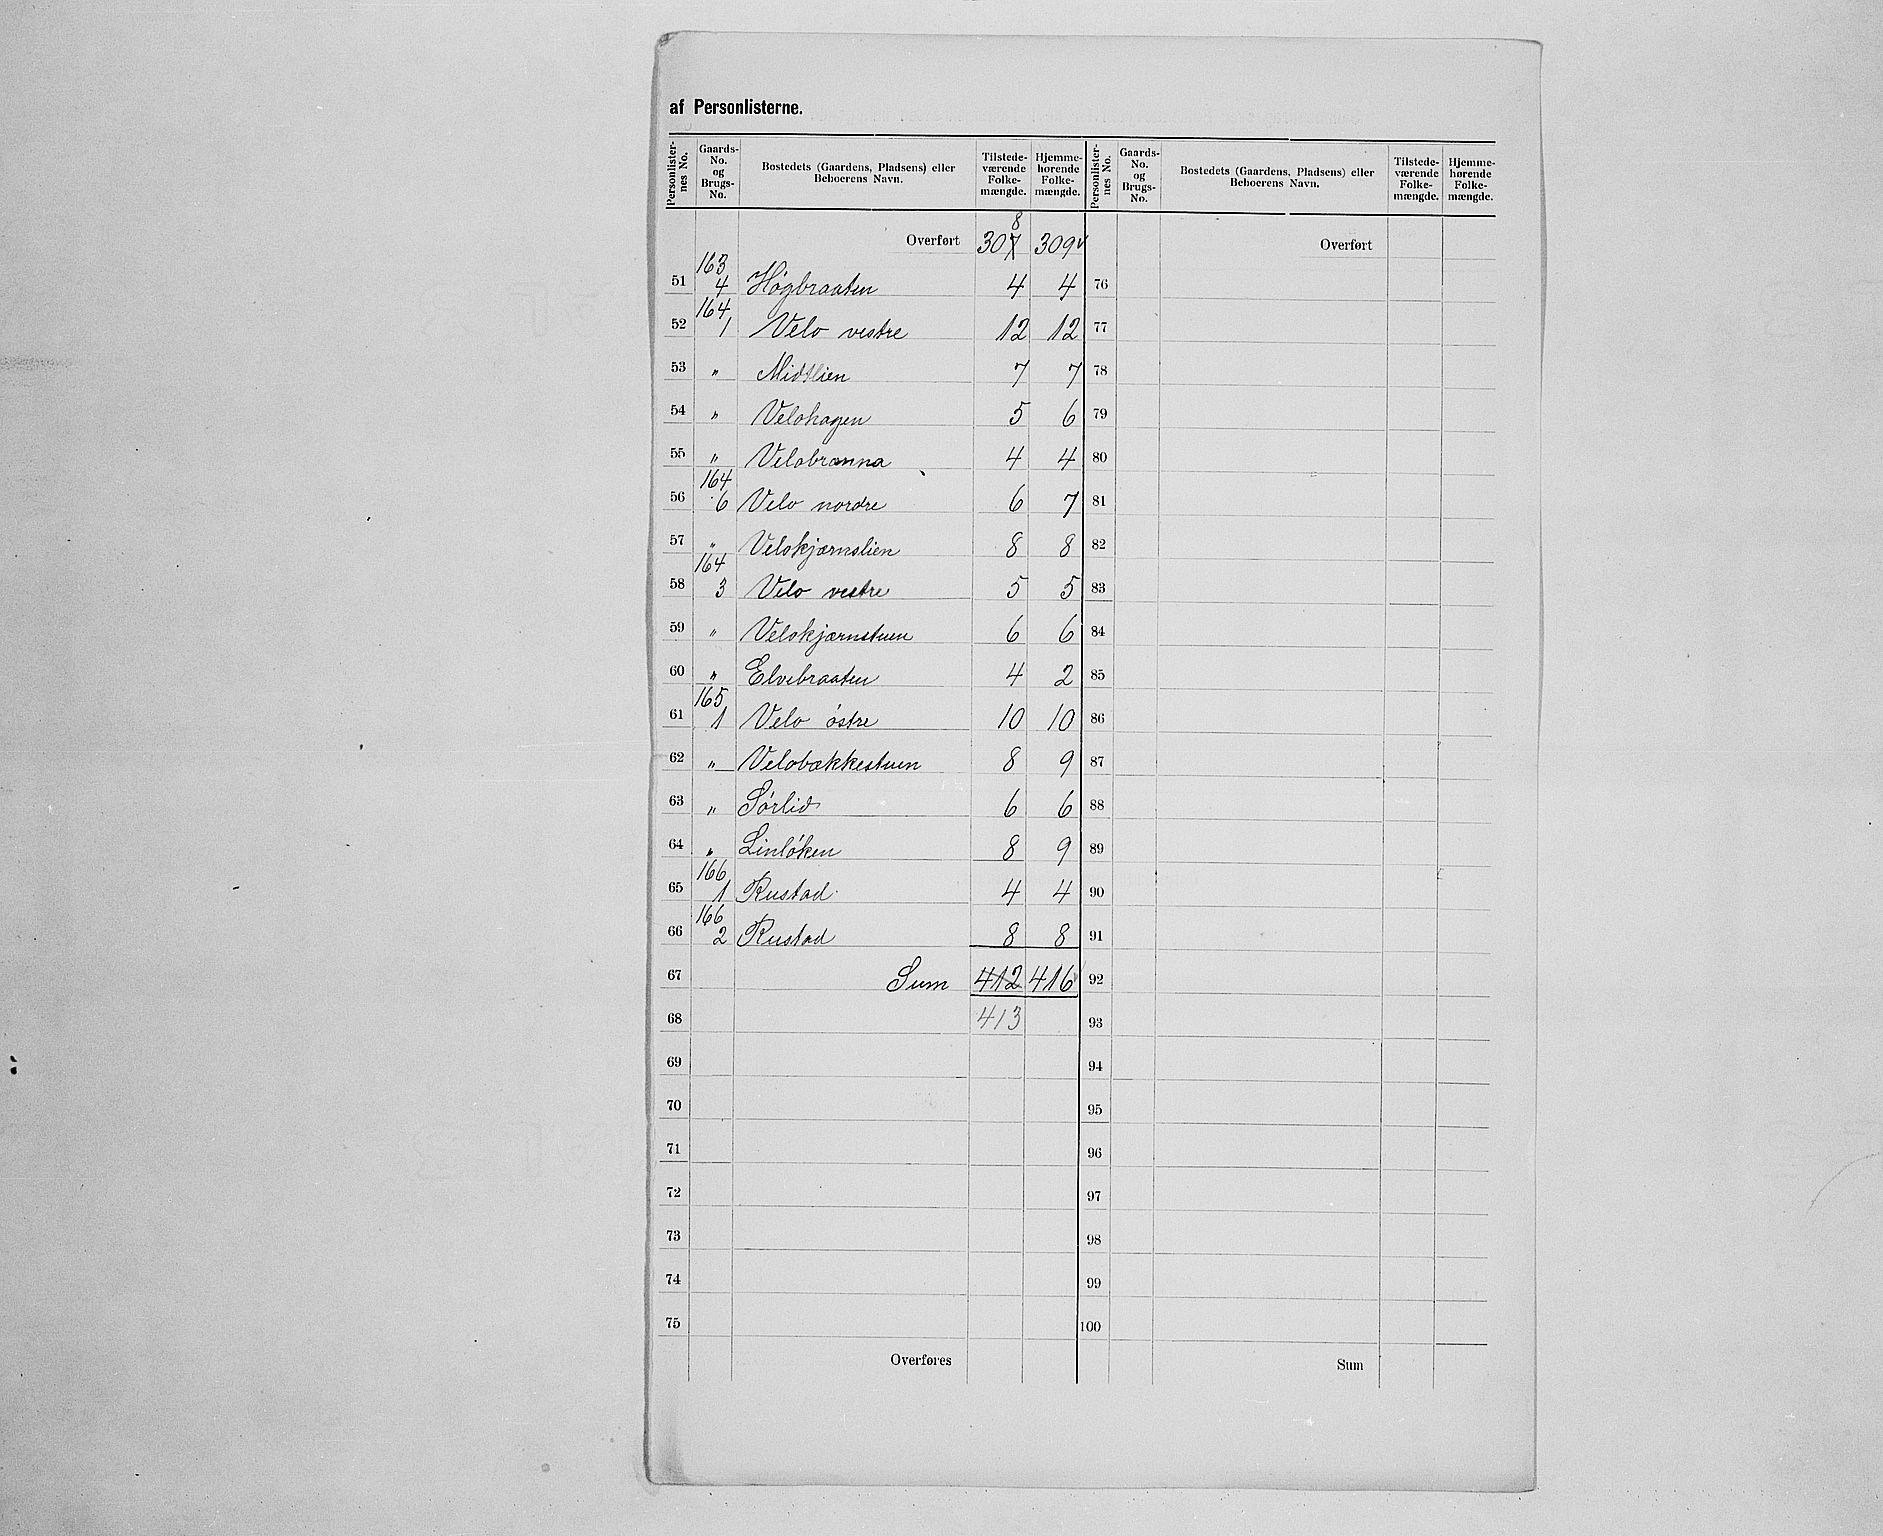 af Personlisterne.
Personlisternes No. Gaards-No. og Brugs-No. Bostedets (Gaardens, Pladsens) eller Beboerens Navn. Tilstedeværende Folkemængde. Hjemmehørende Folkemængde. Personlisternes No. Gaards-No. og Brugs-No. Bostedets (Gaardens, Pladsens) eller Beboerens Navn. Tilstedeværende Folkemængde. Hjemmehørende Folkemængde.
8
Overført 307 309 Overført
51 163 4 Høgbraaten 4 4 76
52 164 1 Velo vestre 12 12 77
53 " Midtlien 7 7 78
54 " Velohagen 5 6 79
55 " Velobranna 4 4 80
56 164 6 Velo nordre 6 7 81
57 " Velokjærnslien 8 8 82
58 164 3 Velo vestre 5 5 83
59 " Velokjærnstuen 6 6 84
60 " Elvebraaten 4 2 85
61 165 1 Velo östre 10 10 86
62 " Velobækkestuen 8 9 87
63 " Sörlid 6 6 88
64 " Linlöken 8 9 89
65 166 1 Rustad 4 4 90
66 166 2 Rustad 8 8 91
67 Sum 412 416 92
68 413 93
69 94
70 95
71 96
72 97
73 98
74 99
75 100
Overføres Sum